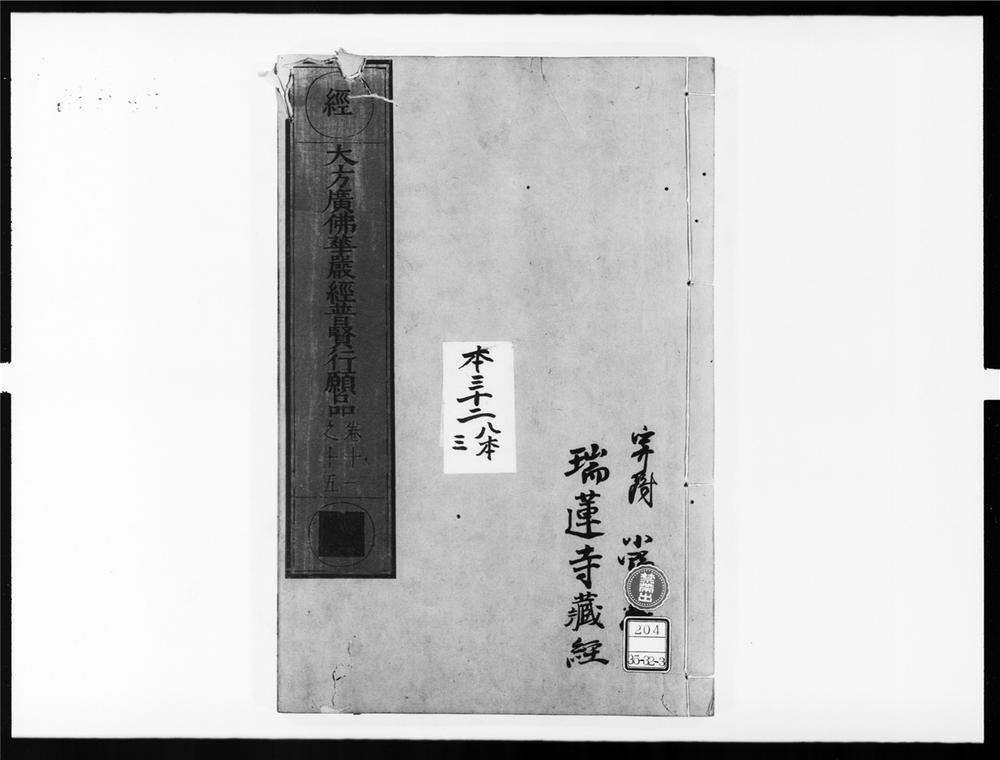 經
大方廣佛華嚴經普賢行願品
卷十一
之十五
本三十二八本
三
瑞蓮寺藏經
禁帶出
204
35-32-3